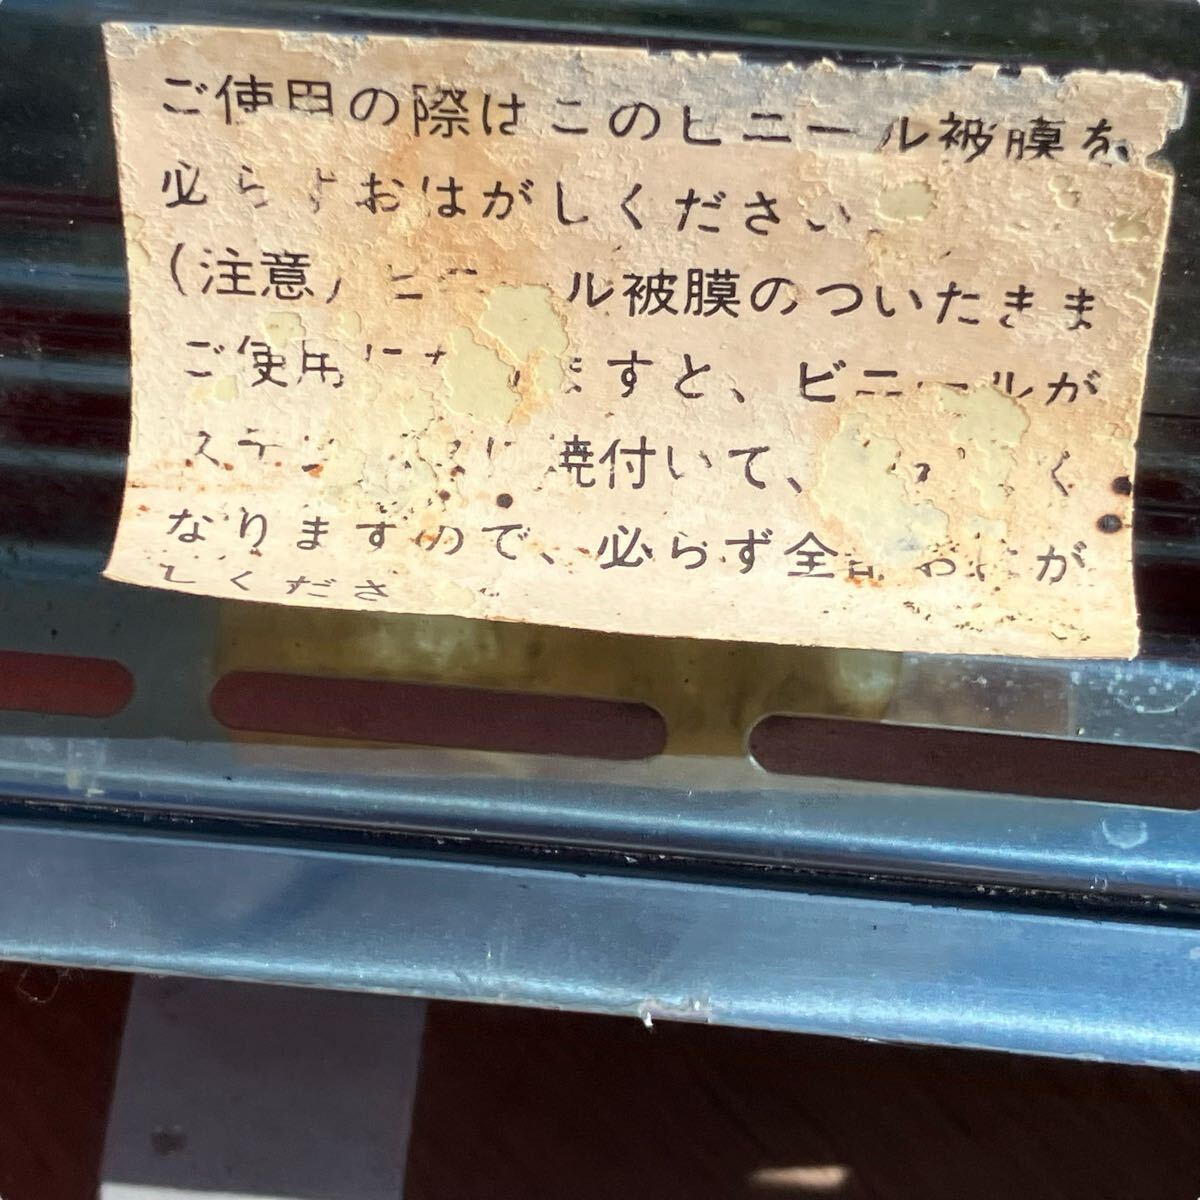 ご使用の際はこのビニール被膜を
必らずおはがしください。
(注意) ビニール被膜のついたまま
ご使用になりますと、ビニールが
ステンレスに焼付いて、く
なりますので、必らず全部おはが
しくださ